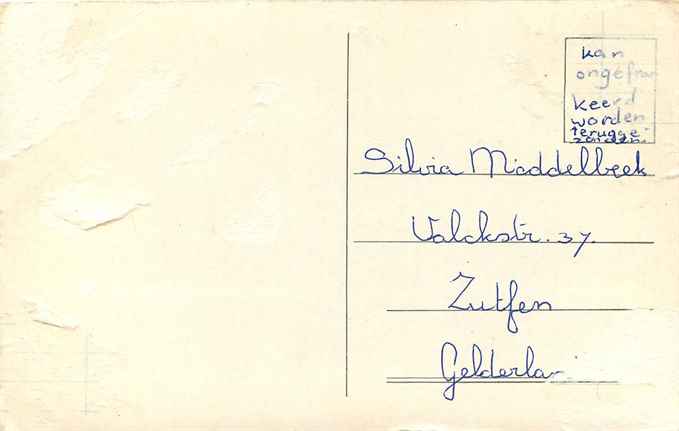 kan
ongefran
keerd
worden
terugge-
zonden.
Silvia Middelbeek
Valckstr. 37.
Zutfen